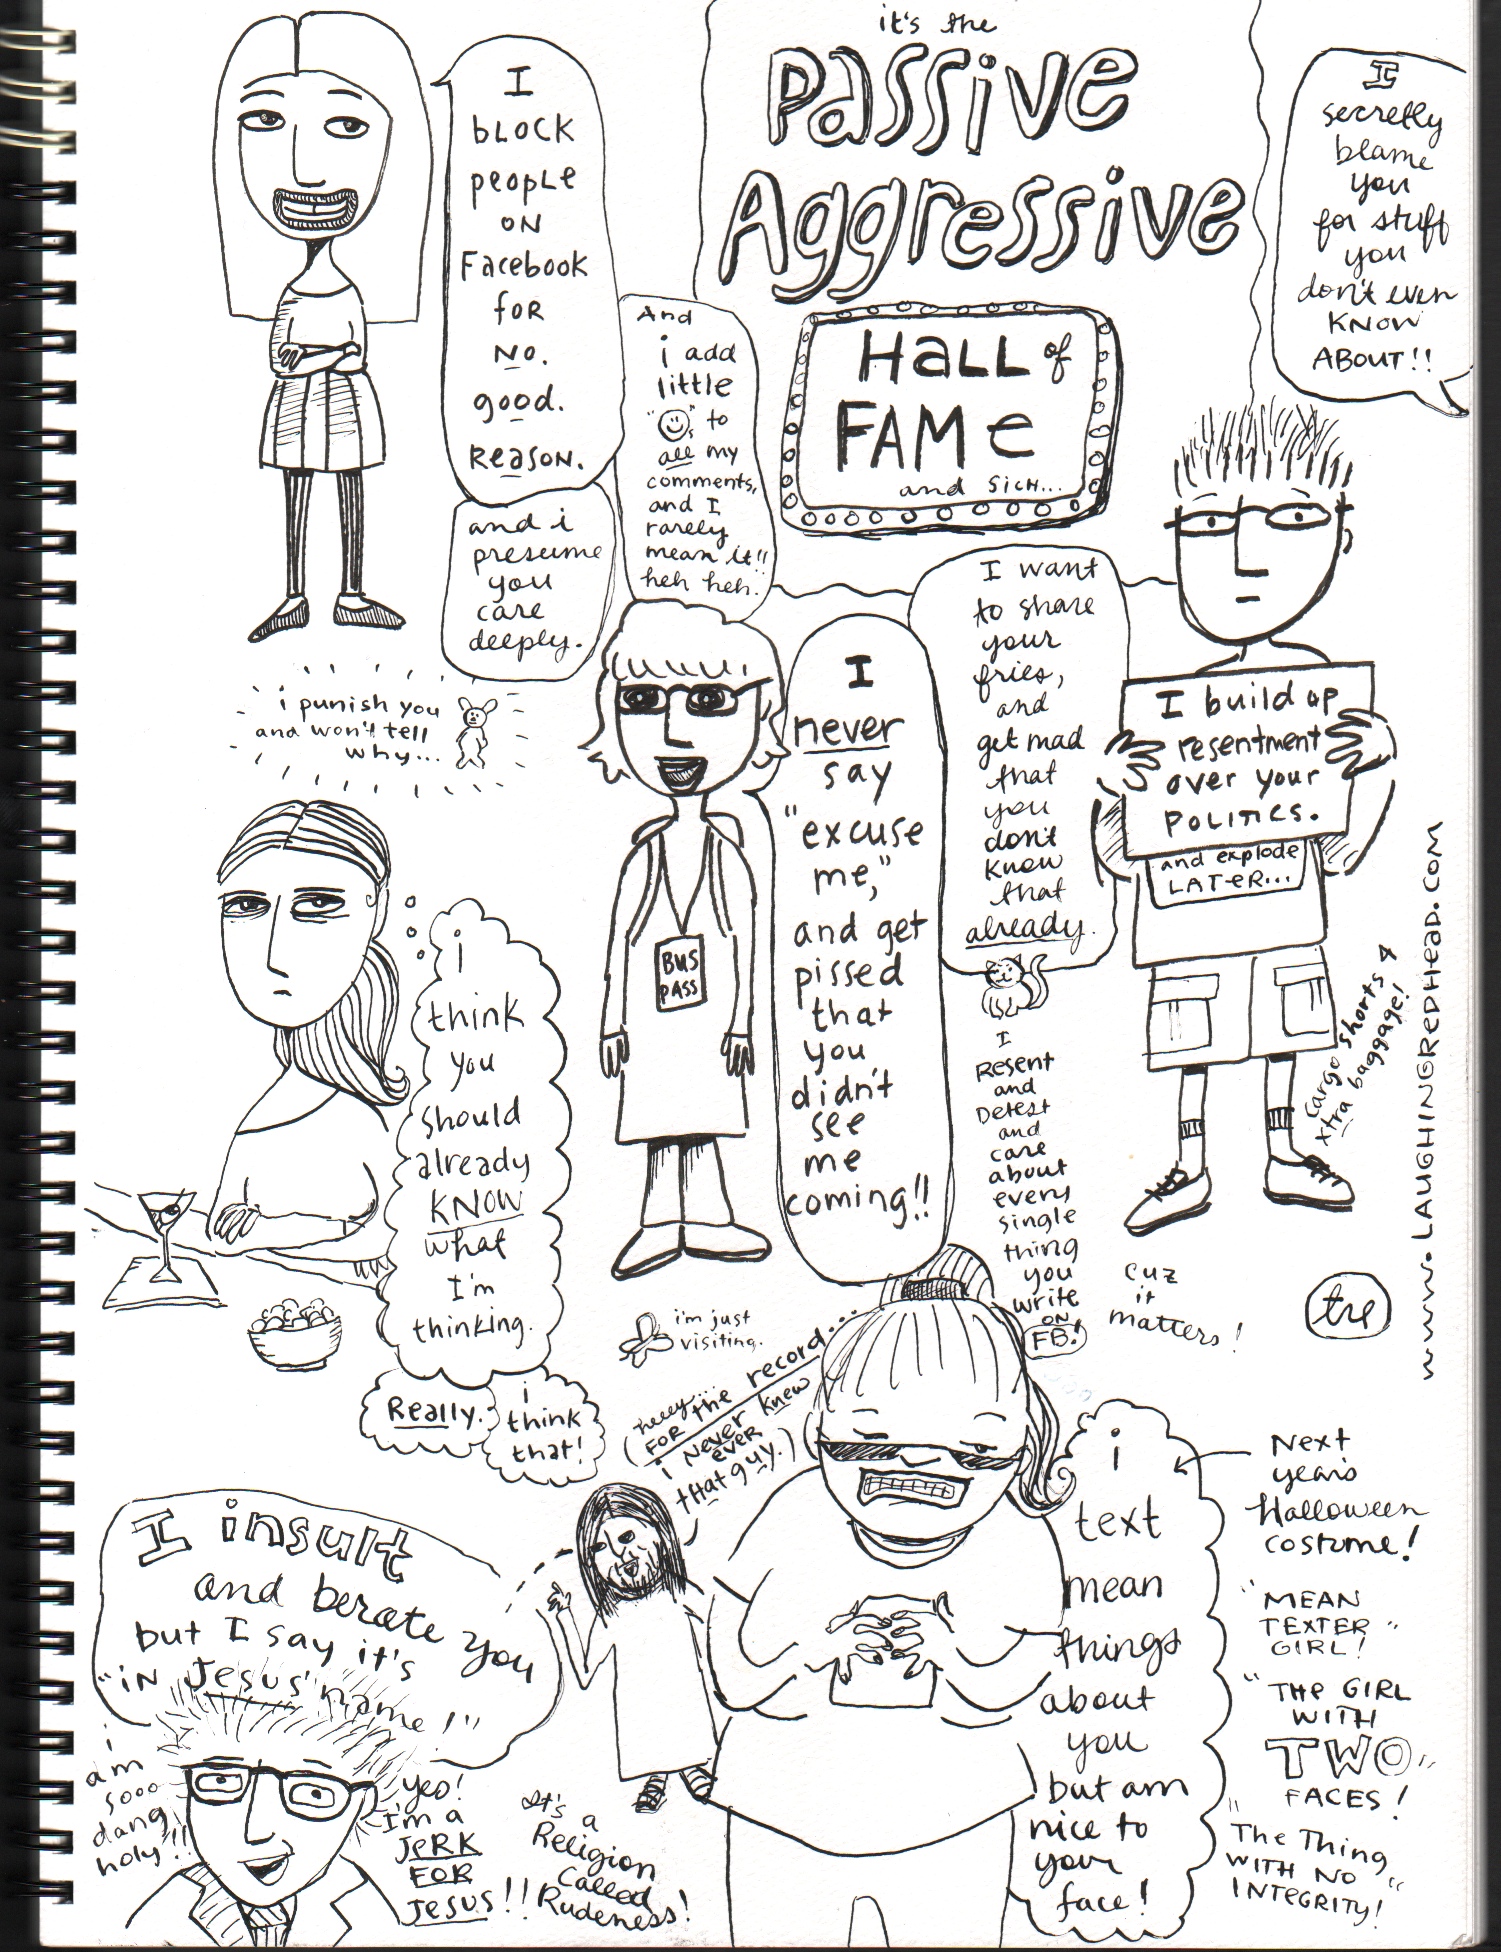 it's the
Passive
Aggressive
HaLL of
FAMe
and SICH...
I
bLOCK
peopLe
ON
Facebook
foR
NO.
good.
ReaSON.
and i
presume
you
care
deeply.
And
i add
little
"☺"s to
all my
comments,
and I
rarely
mean it!!
heh heh.
I
secretly
blame
you
for stuff
you
don't even
KNOW
ABOUT!!
I build up
resentment
over your
POLITICS.
and explode
LATeR...
cargo shorts &
xtra baggage!
www.LAUGHINGREDHEAD.COM
i punish you
and won't tell
why...
I
never
say
"excuse
me,"
and get
pissed
that
you
didn't
see
me
coming!!
BUS
PASS
I want
to share
your
fries,
and
get mad
that
you
don't
know
that
already.
I
Resent
and
Detest
and
care
about
every
single
thing
you
write
ON
FB!
cuz
it
matters!
tre
i
think
you
should
already
KNOW
what
I'm
thinking.
Really.
i
think
that!
i'm just
visiting.
(heeey...
FOR the record...
i Never knew
EVER
that guy.)
I insult
and berate you
but I say it's
"iN Jesus' name!"
i
am
sooo
dang
holy!!
yes!
I'm a
JeRK
FOR
JESUS!!
It's
a
Religion
Called
Rudeness!
i
text
mean
things
about
you
but am
nice to
your
face!
Next
year's
Halloween
costume!
"MEAN
TEXTER
GIRL!"
"THe GIRL
WITH
TWO
FACES!"
"The Thing
WITH NO
INTEGRITY!"